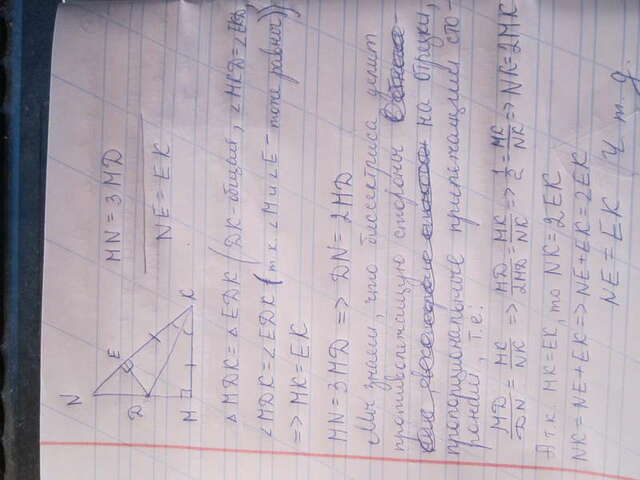 N
E
D
M
K
MN = 3MD
NE = EK
△MDK = △EDK (DK - общая, ∠MKD = ∠EKD,
∠MDK = ∠EDK (т.к. ∠M и ∠E - тоже равны))
=> MK = EK
MN = 3MD => DN = 2MD
Мы знаем, что биссектриса делит
противолежащую стороны
на отрезки,
пропорциональные прилежащим сто-
ронам, т.е.:
MD/DN = MK/NK => MD/2MD = MK/NK => 1/2 = MK/NK => NK = 2MK
А т.к. MK = EK, то NK = 2EK
NK = NE + EK => NE + EK = 2EK
NE = EK
Ч.т.д.